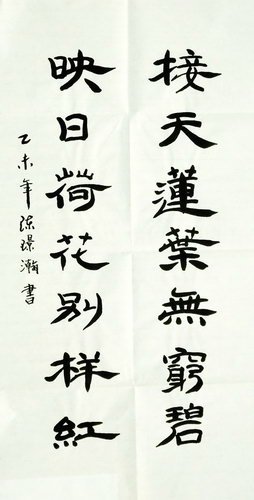 接天蓮葉無窮碧
映日荷花别样紅
乙未年陈璟瀚書